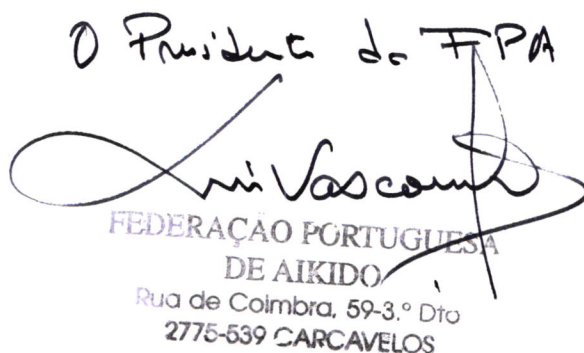 O Presidente da FPA
Luís Vasconcelos
FEDERAÇÃO PORTUGUESA
DE AIKIDO
Rua de Coimbra, 59-3.º Dto
2775-539 CARCAVELOS